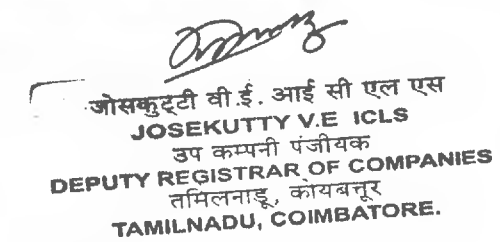 जोसकुट्टी वी.ई. आई सी एल एस
JOSEKUTTY V.E ICLS
उप कम्पनी पंजीयक
DEPUTY REGISTRAR OF COMPANIES
तमिलनाडू, कोयबत्तूर
TAMILNADU, COIMBATORE.